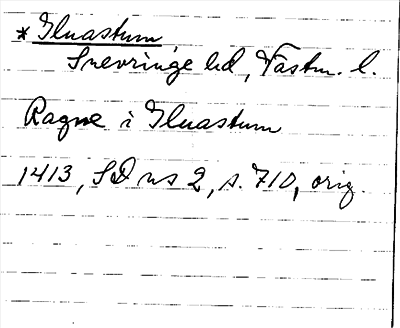 * Gluastum
Snevringe hd, Västm. l.
Ragne i Gluastum
1413, SD ns 2, s. 710, orig.